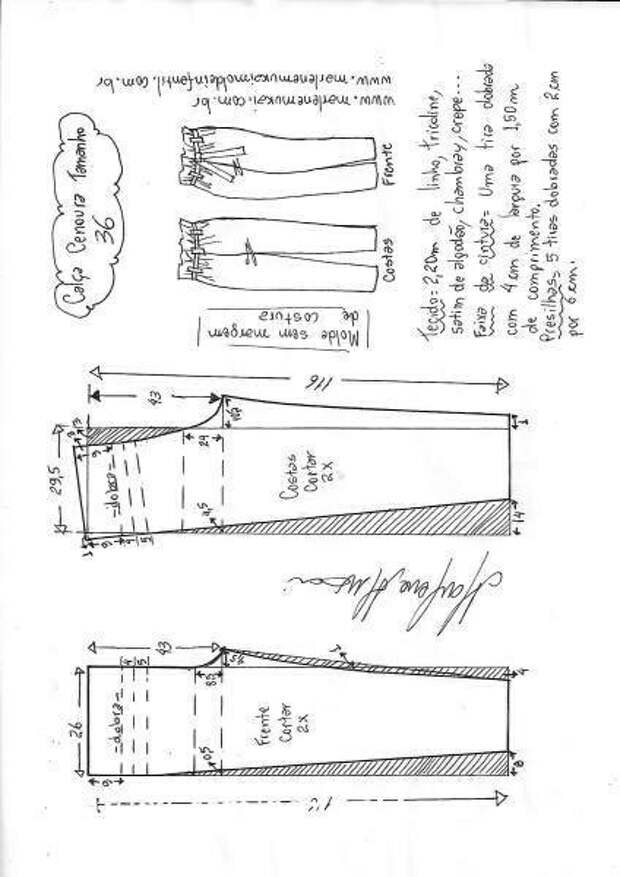 Calça Cenoura Tamanho
36
www.marlenemukai.com.br
www.marlenemukaimoldeinfantil.com.br
Frente
Costas
Molde sem margem
de costura
Tecido= 2,20m de linho, tricoline,
satim de algodão, chambray, crepe....
Faixa de cintura= Uma tira dobrada
com 4cm de largura por 1,50m
de comprimento.
Presilhas= 5 tiras dobradas com 2cm
por 6cm.
116
43
29,5
=dobra=
24
4,5
Costas
Cortar
2x
14
Marlene Mukai
43
26
=dobra=
4
5
0,5
Frente
Cortar
2x
4
8